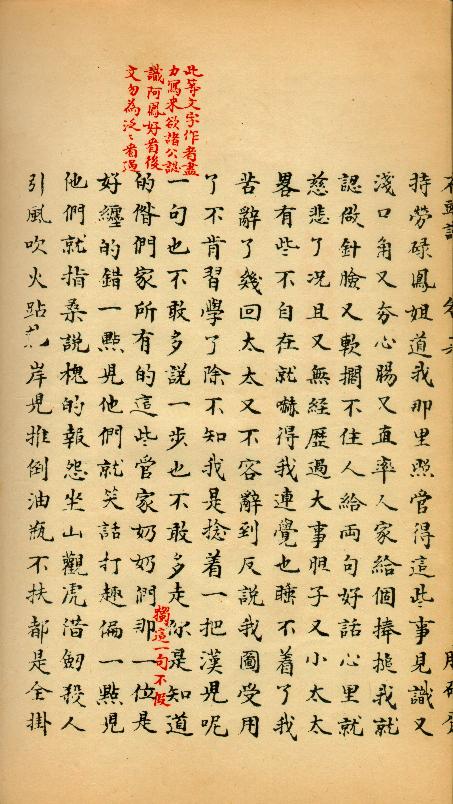 持勞碌鳳姐道我那里照管得這些事見識又
淺口角又夯心腸又直率人家給個捧搥我就
認做針臉又軟擱不住人給両句好話心里就
慈悲了况且又無經歷過大事胆子又小太太
畧有些不自在就嚇得我連覺也睡不着了我
苦辭了幾回太太又不容辭到反說我圖受用
了不肯習學了除不知我是捻着一把漢兒呢
一句也不敢多說一步也不敢多走你是知道
的偺們家所有的這些管家奶奶們那一位是
好纏的錯一點兒他們就笑話打趣偏一點兒
他們就指桑說槐的報怨坐山觀虎借劒殺人
引風吹火跕岸兒推倒油瓶不扶都是全掛
此等文字作者盡
力寫來欲諸公認
識阿鳳好看後
文勿為泛〻看過
獨這一句不假